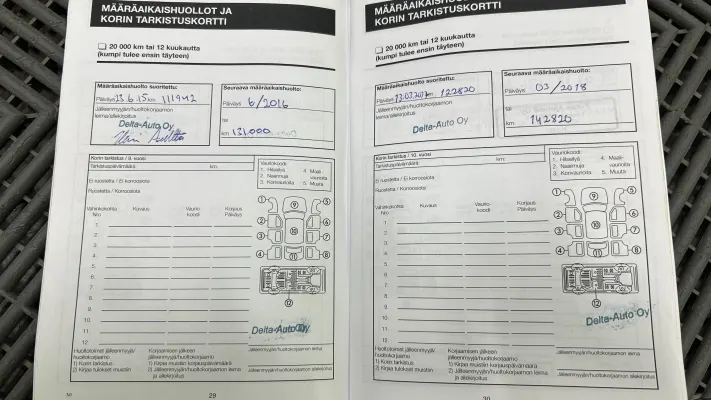 MÄÄRÄAIKAISHUOLLOT JA
KORIN TARKISTUSKORTTI
20 000 km tai 12 kuukautta
(kumpi tulee ensin täyteen)
Määräaikaishuolto suoritettu:
Päiväys 23.6.15 km 111942
Jälleenmyyjän/huoltokorjaamon
leima/allekirjoitus
Delta-Auto Oy
Seuraava määräaikaishuolto:
Päiväys 6/2016
tai
km 131.000
Korin tarkastus / 9. vuosi
Tarkastuspäivämäärä km:
Ei ruostetta / Ei korroosiota
Ruostetta / Korroosiota
Vauriokoodi:
1. Hilseilyä 4. Maali-
2. Naarmuja vaurioita
3. Korivaurioita 5. Muuta
Vahinkokohta Kuvaus Vaurio- Korjaus
Nro koodi Päiväys
1.
2.
3.
4.
5.
6.
7.
8.
9.
10.
11.
12.
1 2 3 4 5 6 7 8 9 10 11 12
Delta-Auto Oy
Huoltotoimet jälleenmyyjä/
huoltokorjaamo
1) Korin tarkistus
2) Kirjaa tulokset muistiin
Korjaamisen jälkeen
jälleenmyyjä/huoltokorjaamo
1) Kirjaa muistiin korjauspäivämäärä
2) Jälleenmyyjän/huoltokorjaamon leima
ja allekirjoitus
Jälleenmyyjän/huoltokorjaamon leima
29
MÄÄRÄAIKAISHUOLLOT JA
KORIN TARKISTUSKORTTI
20 000 km tai 12 kuukautta
(kumpi tulee ensin täyteen)
Määräaikaishuolto suoritettu:
Päiväys 13.03.2017 km 122820
Jälleenmyyjän/huoltokorjaamon
leima/allekirjoitus
Delta-Auto Oy
Seuraava määräaikaishuolto:
Päiväys 03/2018
tai
km: 142820
Korin tarkastus / 10. vuosi
Tarkastuspäivämäärä km:
Ei ruostetta / Ei korroosiota
Ruostetta / Korroosiota
Vauriokoodi:
1. Hilseilyä 4. Maali-
2. Naarmuja vaurioita
3. Korivaurioita 5. Muuta
Vahinkokohta Kuvaus Vaurio- Korjaus
Nro koodi Päiväys
1.
2.
3.
4.
5.
6.
7.
8.
9.
10.
11.
12.
1 2 3 4 5 6 7 8 9 10 11 12
Delta-Auto Oy
Huoltotoimet jälleenmyyjä/
huoltokorjaamo
1) Korin tarkistus
2) Kirjaa tulokset muistiin
Korjaamisen jälkeen
jälleenmyyjä/huoltokorjaamo
1) Kirjaa muistiin korjauspäivämäärä
2) Jälleenmyyjän/huoltokorjaamon leima
ja allekirjoitus
Jälleenmyyjän/huoltokorjaamon leima
30